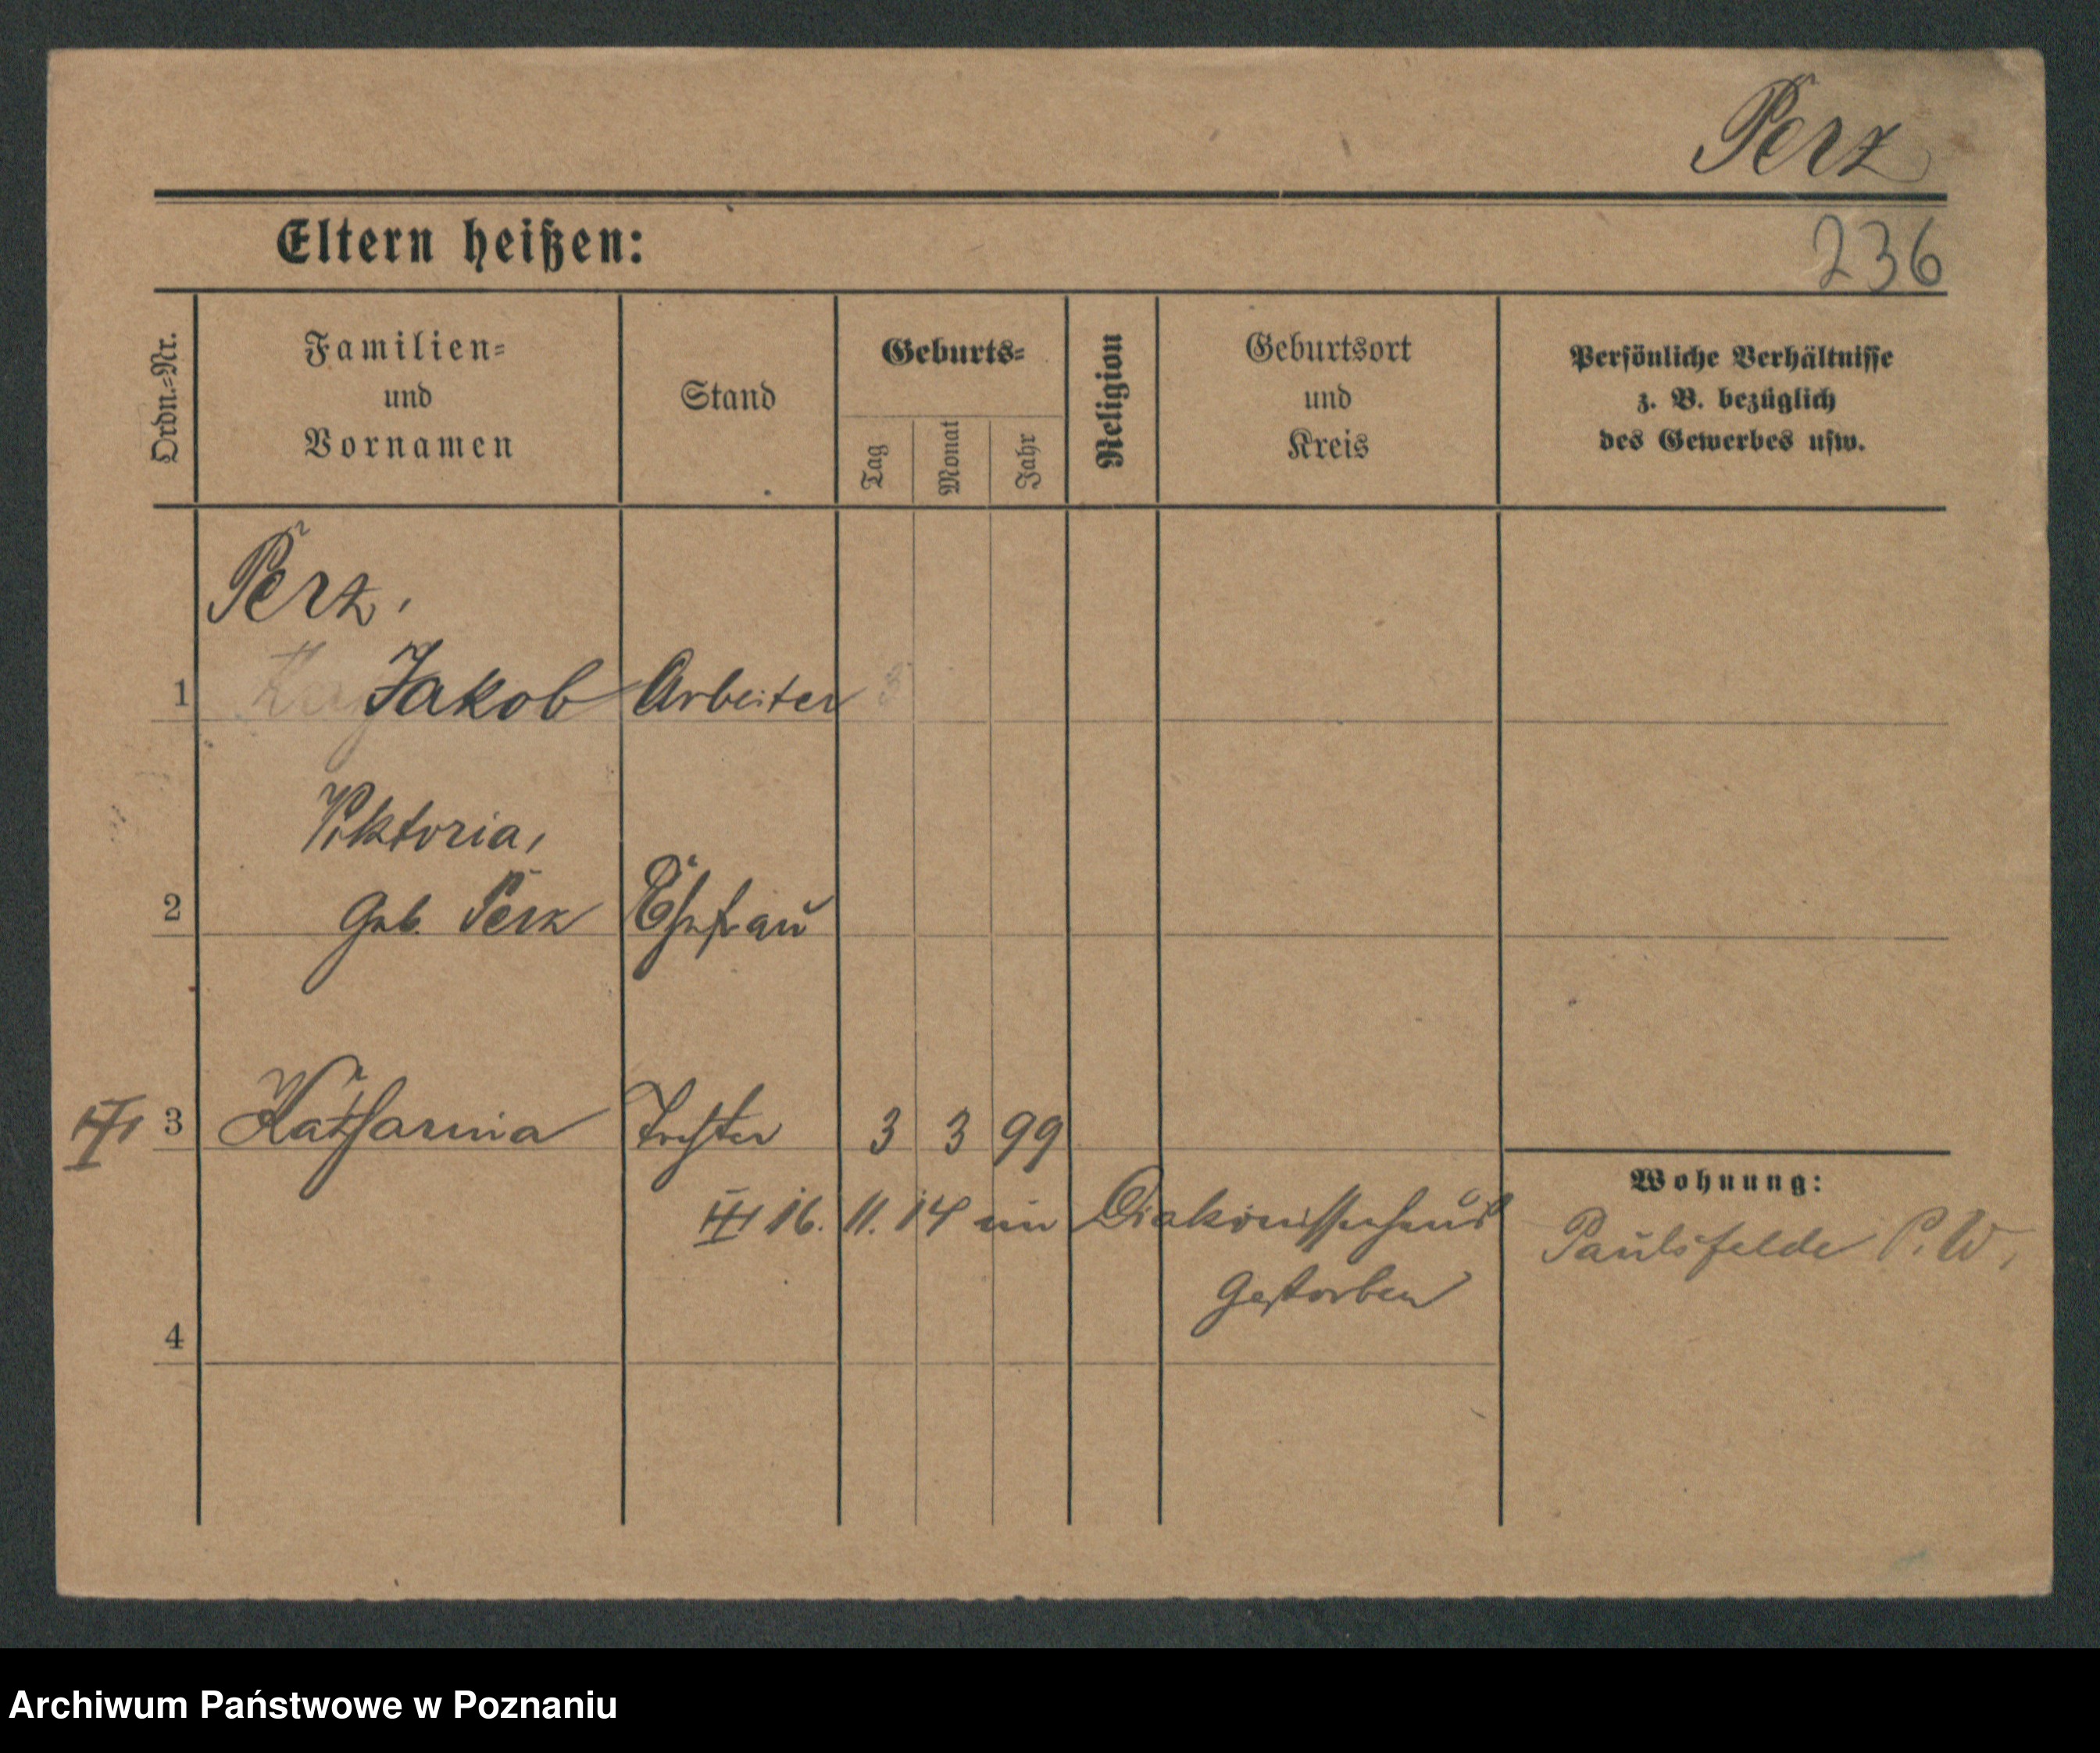 Perz
Eltern heißen:
236
Ordn.-Nr.
Familien-
und
Vornamen
Stand
Geburts-
Tag
Monat
Jahr
Religion
Geburtsort
und
Kreis
Persönliche Verhältnisse
z. B. bezüglich
des Gewerbes usw.
Perz,
1 Jakob Arbeiter
Viktoria,
2 geb. Perz Ehefrau
3 Katharina Tochter 3 3 99
Wohnung:
III 16. 11. 14 im Diakonissenhaus
Paulsfelde P. W.
gestorben
4
Archiwum Państwowe w Poznaniu